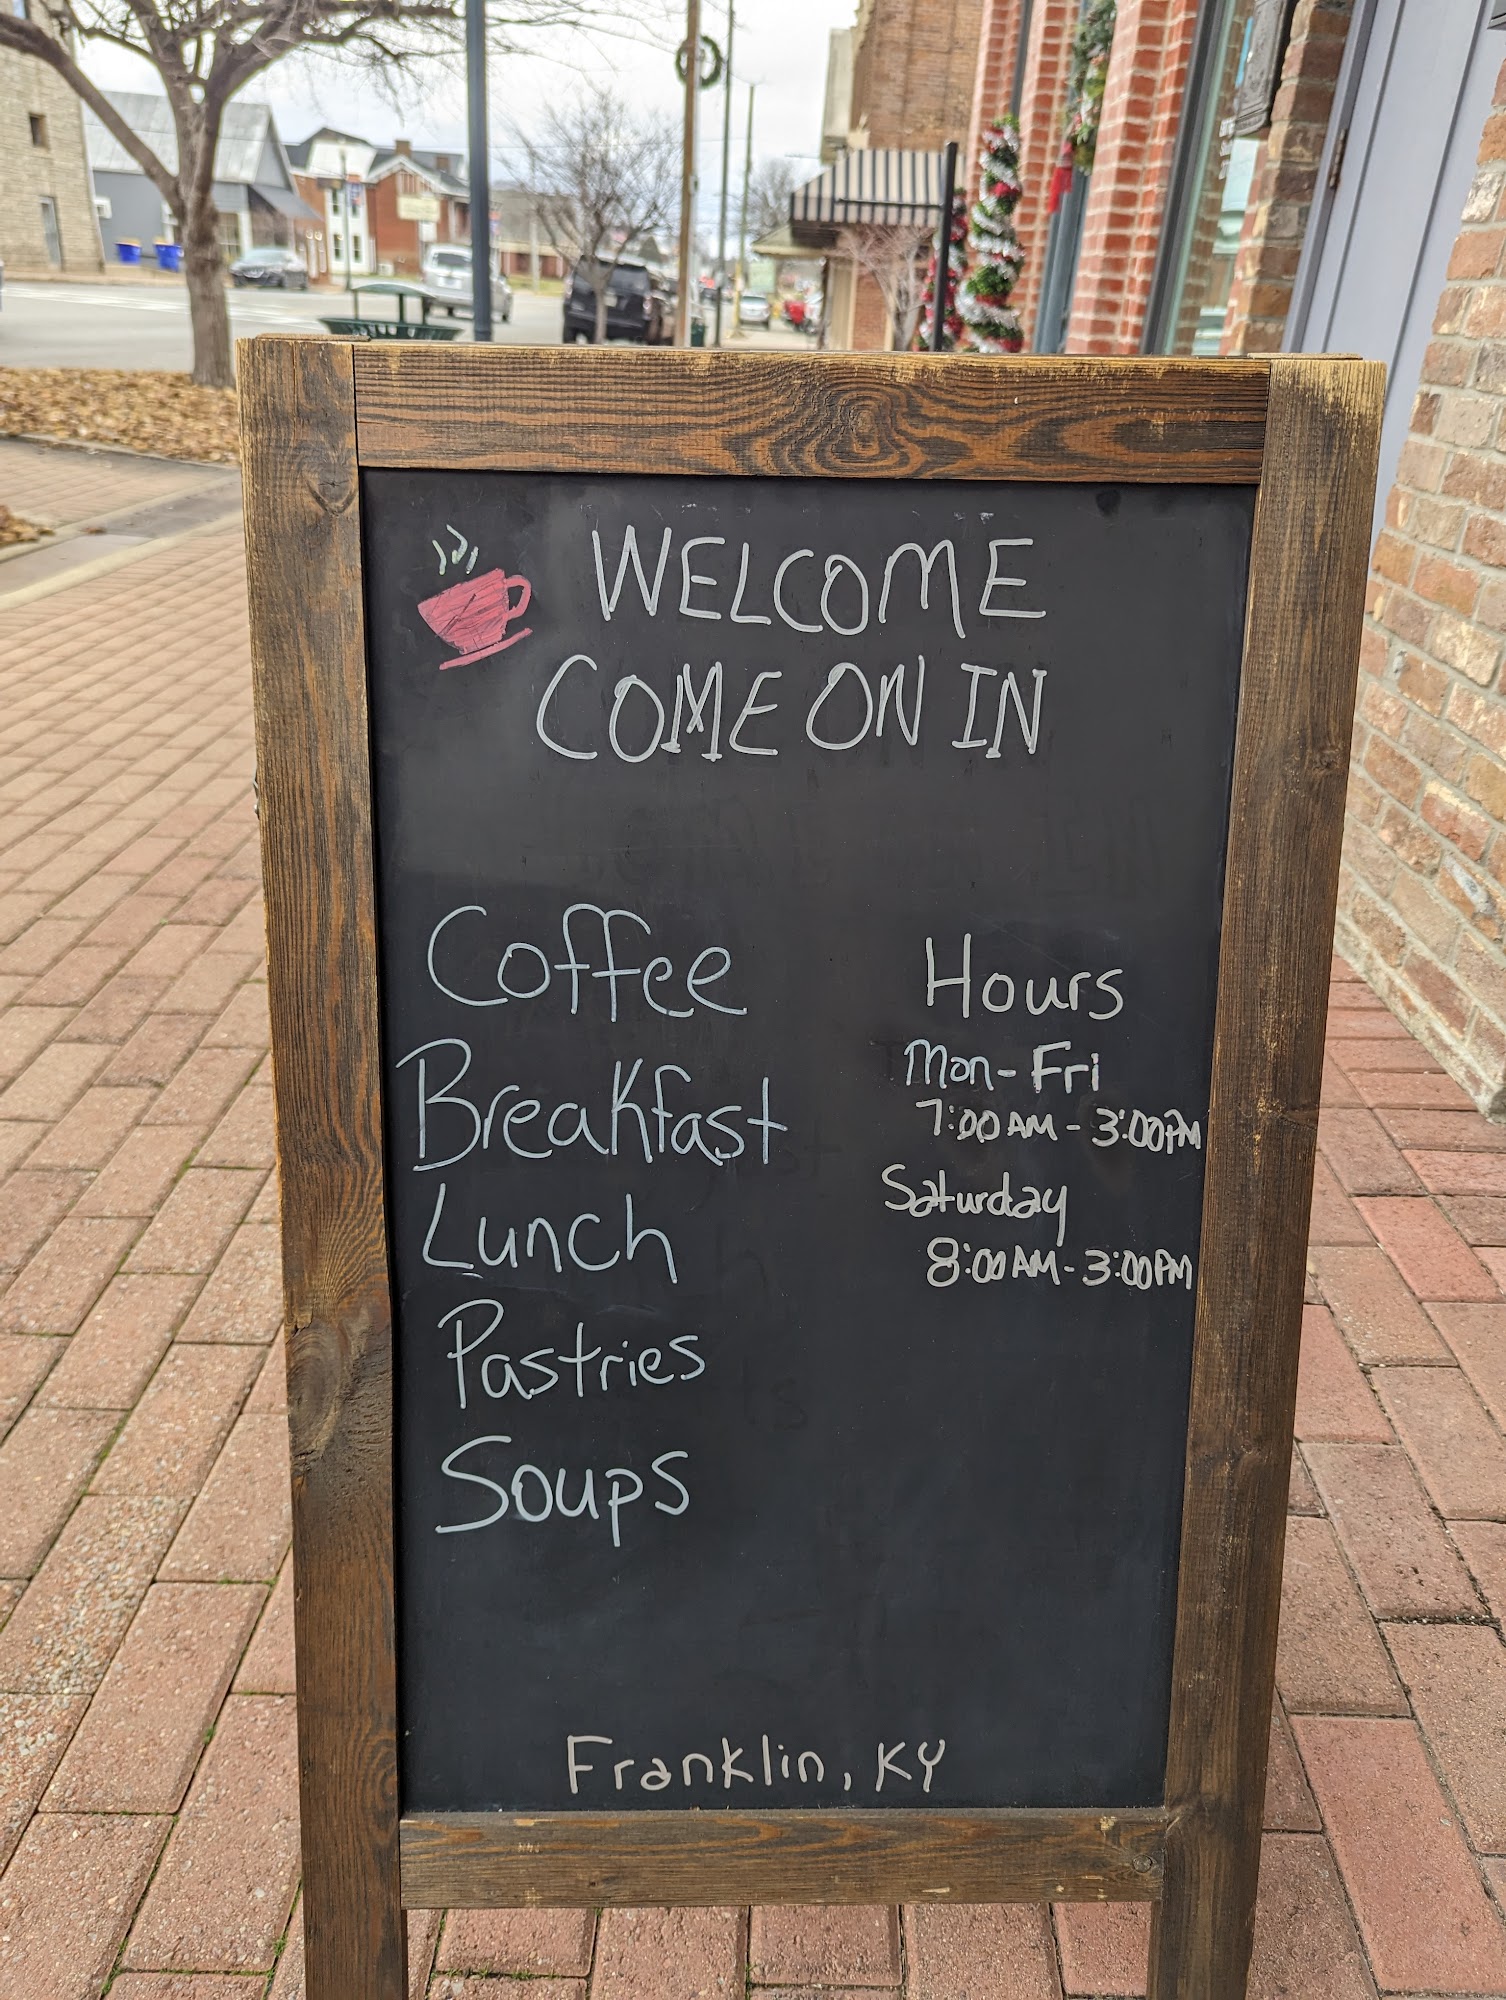 WELCOME
COME ON IN
Coffee
Breakfast
Lunch
Pastries
Soups
Hours
Mon-Fri
7:00AM - 3:00PM
Saturday
8:00AM - 3:00PM
Franklin, KY